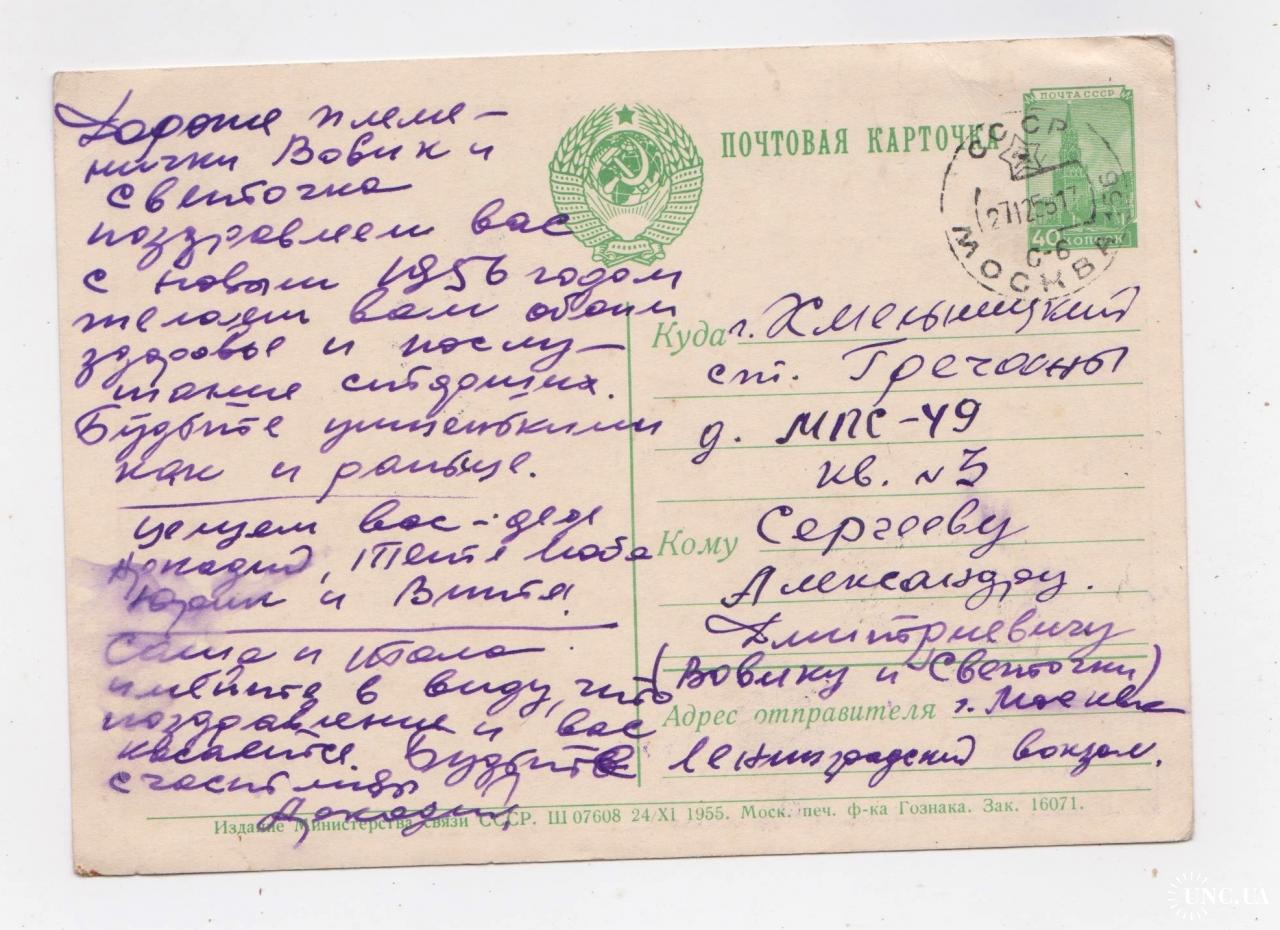 Дорогие племе-
нички Вовик и
Светочка
поздравляем вас
с новым 1956 годом
желаем вам обоим
здоровье и послу-
шание
Будьте умненькими
как и раньше.
целуем вас - дядя
Аркадий, тетя Люба
Юрик и Витя.
Саша и Тала
имейте в виду, что
поздравление и вас
касается. Будьте
счастливы
Аркадий
ПОЧТОВАЯ КАРТОЧКА
ПОЧТА СССР
40 КОПЕЕК
СССР
МОСКВА
С-6
Куда г. Хмельницкий
ст. Гречаны
д. МПС-49
кв. №3
Кому Сергееву
Александру
Дмитриевичу
(Вовику и Светочки)
Адрес отправителя г. Москва
Ленинградский вокзал.
Издание Министерства связи СССР. Ш 07608 24/XI 1955. Моск. печ. ф-ка Гознака. Зак. 16071.
UNC.UA